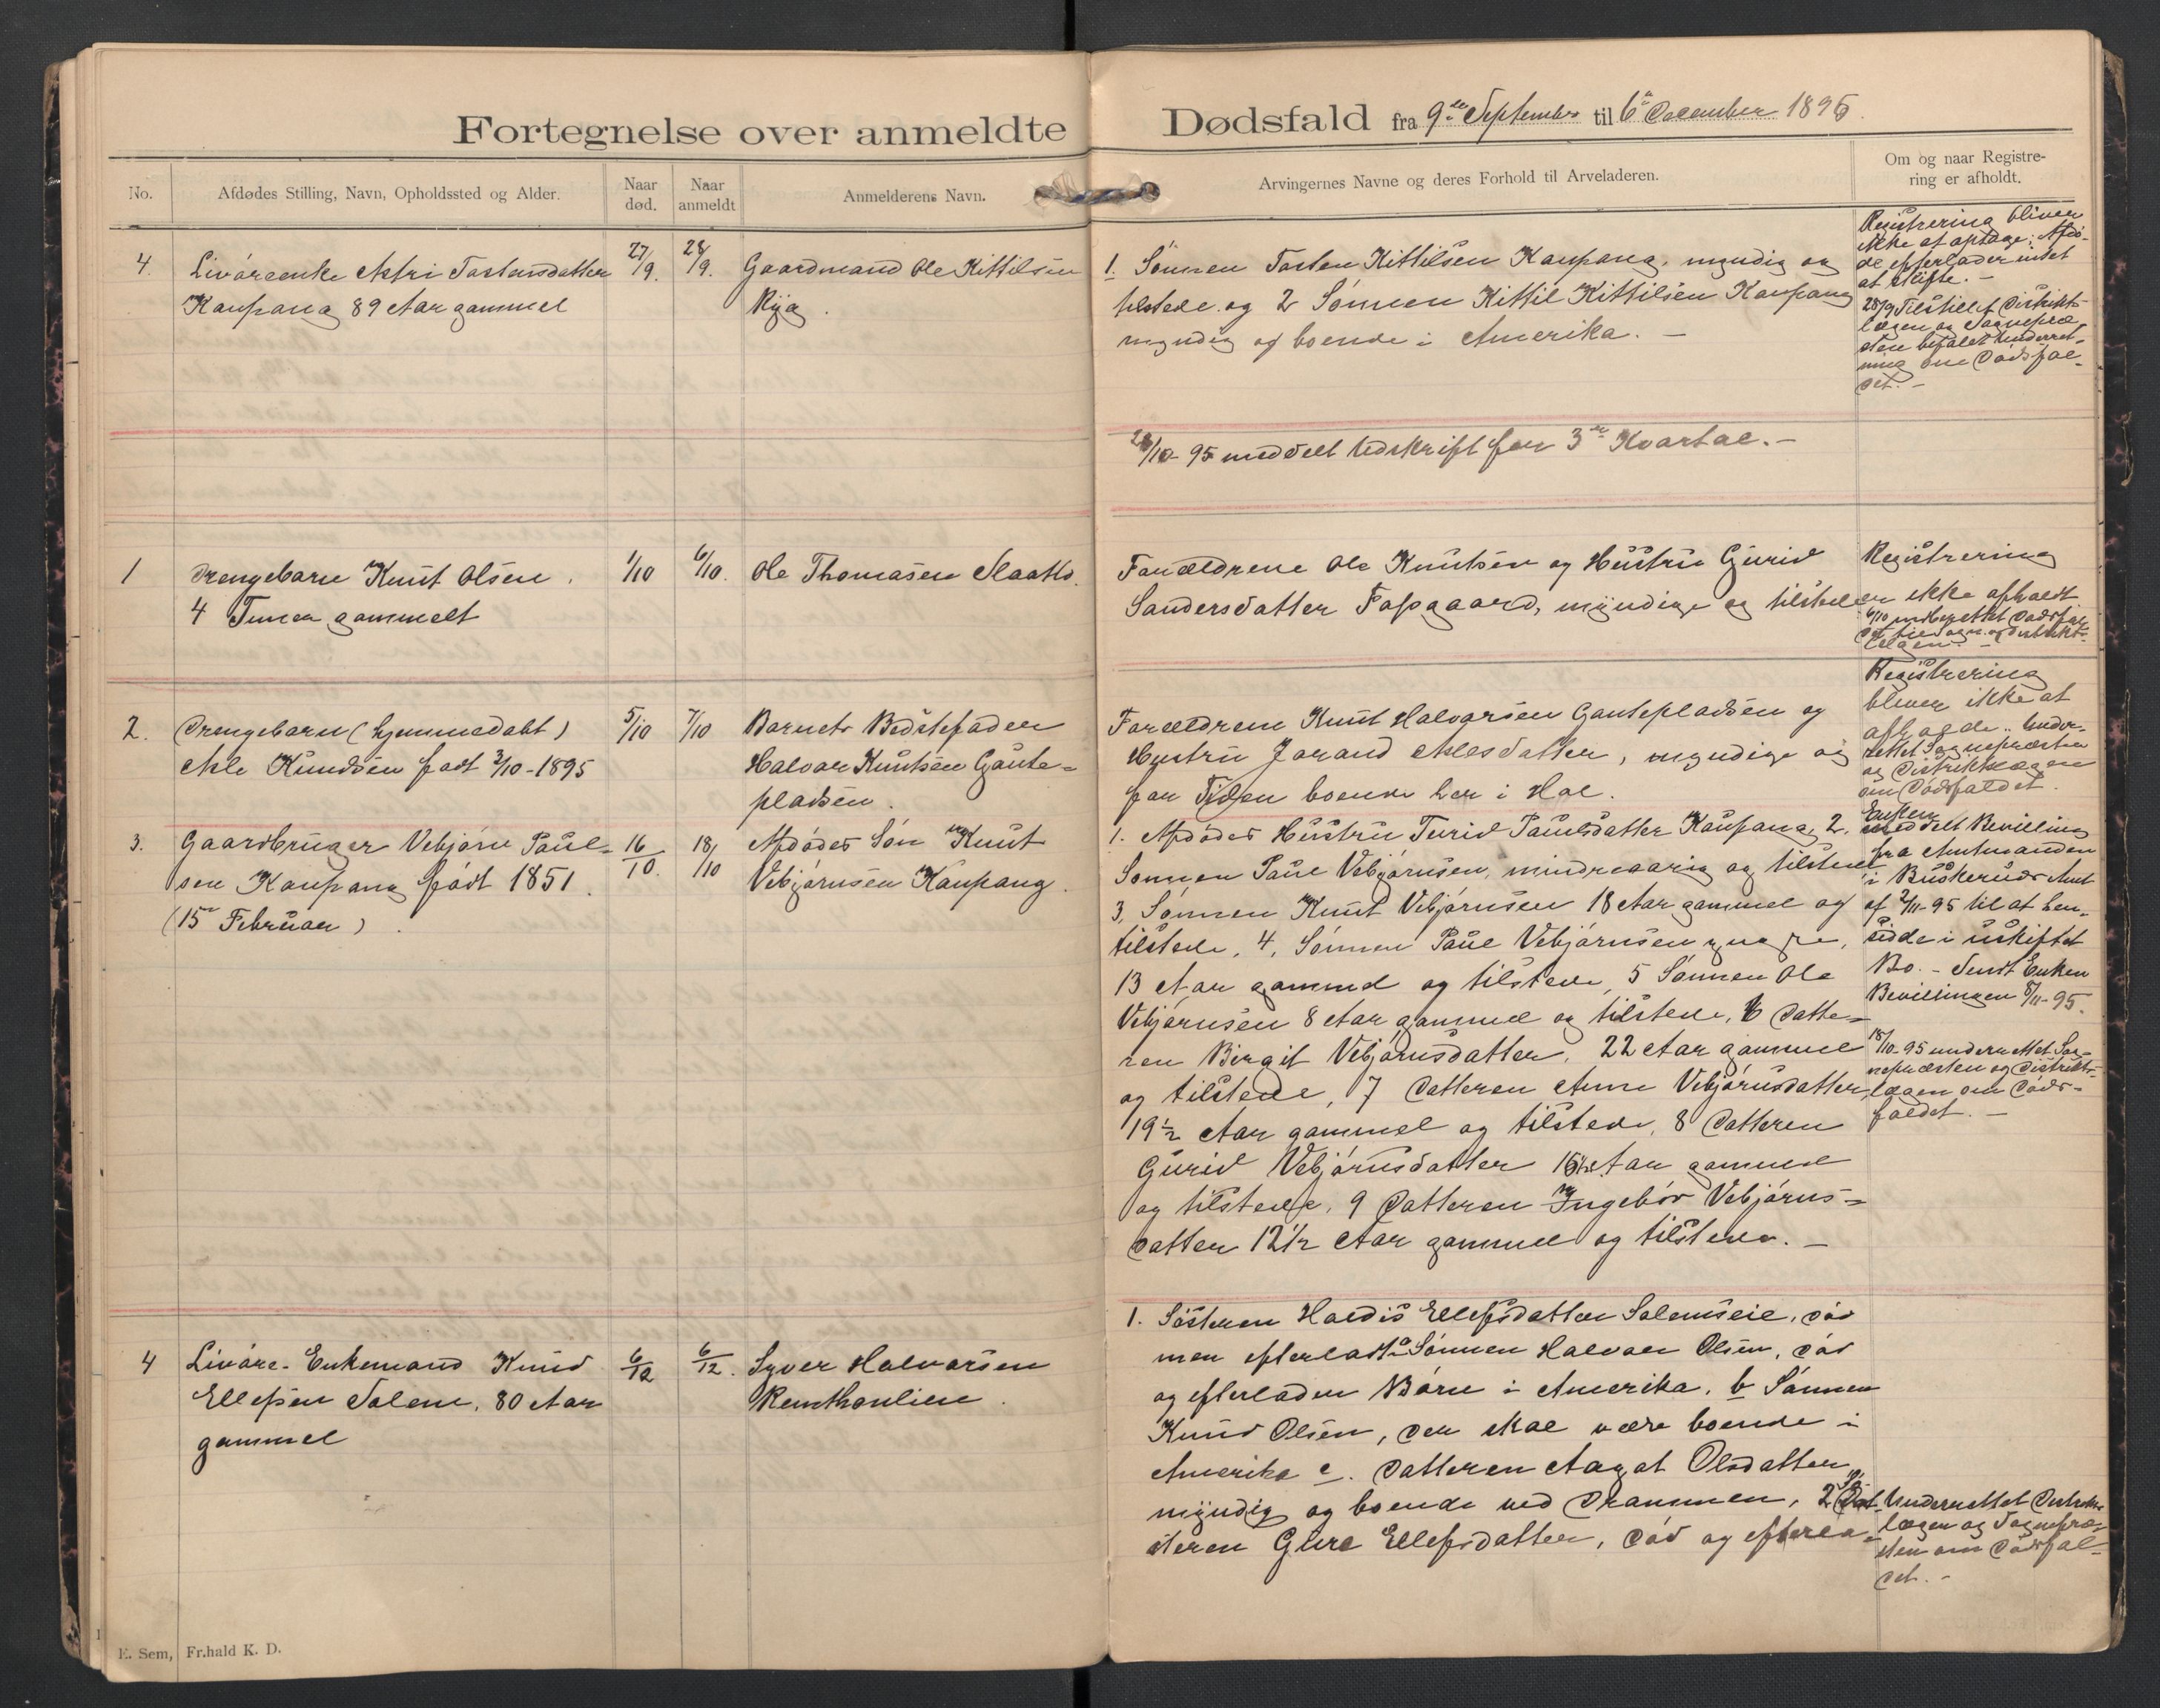 Fortegnelse over anmeldte
No.
Afdødes Stilling, Navn, Opholdssted og Alder.
Naar død.
Naar anmeldt
Anmelderens Navn.
4.
Livøreenke Astri Tostensdatter
Kaupang 89 Aar gammel
27/9.
28/9.
Gaardmand Ole Kittilsen
1
Drengebarn Knut Olsen,
4 Timer gammelt
1/10
6/10.
Ole Thomasen Slaatto.
2.
Drengebarn (hjemmedøbt)
Asle Knudsen født 3/10-1895
5/10
7/10
Barnets Bedstefader
Halvor Knutsen Gaute-
pladsen.
3.
Gaardbruger Vebjørn Paul-
sen Kaupang født 1851.
(15de Februar)
16/10.
18/10
Afdødes Søn Knut
Vebjørnsen Kaupang.
4
Livøre-Enkemand Knud
Ellefsen Solem, 80 Aar
gammel
6/12
6/12.
Syver Halvorsen
E. Sem, Fr.hald K. D.
Dødsfald fra 9de September til 6te December 1895.
Arvingernes Navne og deres Forhold til Arveladeren.
Om og naar Registre-
ring er afholdt.
1. Sønnen Tosten Kittilsen Kaupang, myndig og
tilstede og 2 Sønnen Kittil Kittilsen Kaupang
myndig og boende i Amerika. –
Registrering bliver
ikke at optage; Afdø-
de efterlader intet
at skifte. –
28/9 Tilstillet Distrikts-
lægen og Sognepræ-
sten befalet Underret-
ning om Dødsfal-
det. –
28/10-95 meddelt Udskrift for 3die Kvartal. –
Forældrene Ole Knutsen og Hustru Gurid
Sandersdatter Tofsgaard, myndige og tilstede
Registrering
er ikke afholdt
6/10 underrettet Dødsfal-
Forældrene Knut Halvorsen Gautepladsen og
Hustru Jorand Aslesdatter, myndige og
for Tiden boende her i Hol.
Registrering
bliver ikke at
afholde. Under-
rettet Sognepræsten
og Distriktslægen
om Dødsfaldet.
1. Afdødes Hustru Turid Paulsdatter Kaupang, 2.
Sønnen Paul Vebjørnsen, mindreaarig og tilstede
3, Sønnen Knut Vebjørnsen 18 Aar gammel og
tilstede, 4, Sønnen Paul Vebjørnsen yngre,
13 Aar gammel og tilstede, 5 Sønnen Ole
Vebjørnsen 8 Aar gammel og tilstede, 6 Datte-
ren Birgit Vebjørnsdatter, 22 Aar gammel
og tilstede, 7 Datteren Anne Vebjørnsdatter,
19½ Aar gammel og tilstede, 8 Datteren
Gurid Vebjørnsdatter Aar gammel
og tilstede, 9 Datteren Ingebór Vebjørns-
datter 12½ Aar gammel og tilstede. –
Enken
meddelt Bevilling
fra Amtmanden
i Buskeruds Amt
af 2/11-95 til at hen-
sidde i uskiftet
Bo. – Sendt Enken
Bevillingen 8/11-95.
18/10-95 underrettet Sog-
nepræsten og Distrikts-
lægen om Døds-
faldet. –
1. Søsteren Haldis Ellefsdatter Solemseie, død
men efterladt a Sønnen Halvor Olsen, død
og efterlader Børn i Amerika, b Sønnen
Knud Olsen, der skal være boende i
Amerika c. Datteren Aagot Olsdatter,
myndig og boende ved Drammen, 2 Sø-
steren Guro Ellefsdatter, død og efterla-
Underrettet Distrikts-
lægen og Sognepræ-
sten om Dødsfal-
det. –